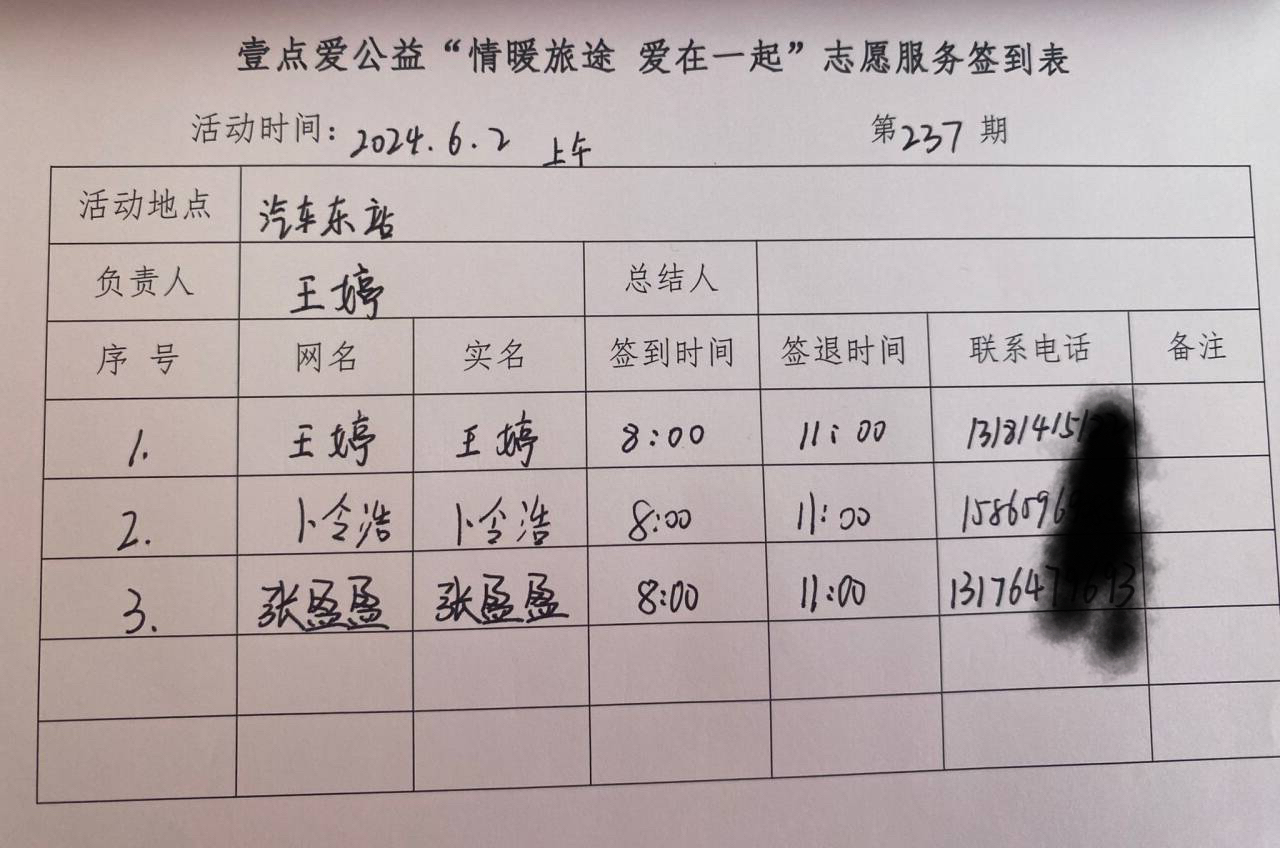 壹点爱公益“情暖旅途 爱在一起”志愿服务签到表
活动时间：2024.6.2 上午 第237期
活动地点 汽车东站
负责人 王婷 总结人
序号 网名 实名 签到时间 签退时间 联系电话 备注
1. 王婷 王婷 8:00 11:00
2. 卜令浩 卜令浩 8:00 11:00
3. 张盈盈 张盈盈 8:00 11:00